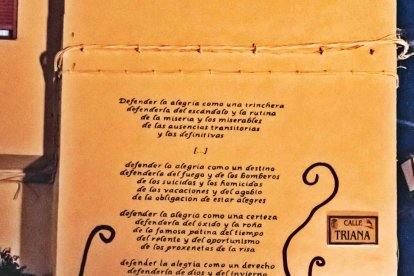 Defender la alegría como una trinchera
defenderla del escándalo y la rutina
de la miseria y los miserables
de las ausencias transitorias
y las definitivas
[...]
defender la alegría como un destino
defenderla del fuego y de los bomberos
de los suicidas y los homicidas
de las vacaciones y del agobio
de la obligación de estar alegres
defender la alegría como una certeza
defenderla del óxido y la roña
de la famosa pátina del tiempo
del relente y del oportunismo
de los proxenetas de la risa
defender la alegría como un derecho
defenderla de dios y del invierno
CALLE
TRIANA